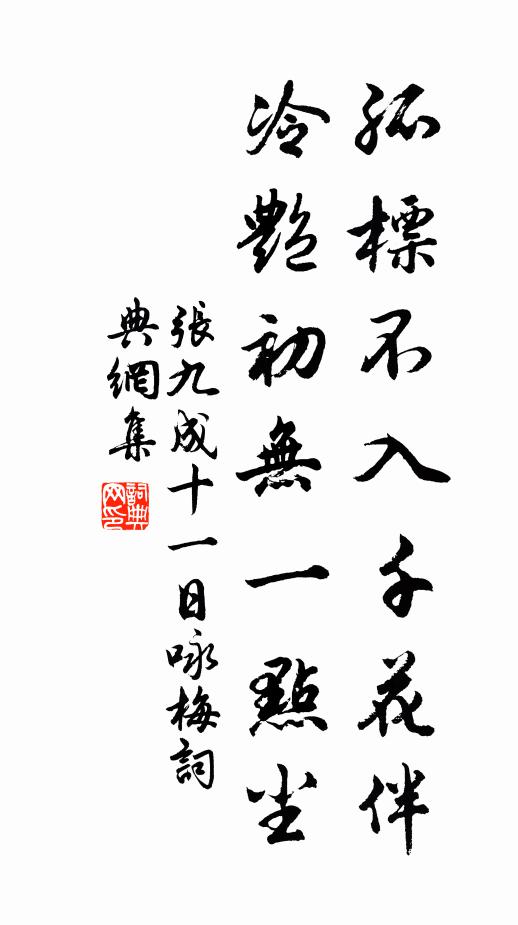 孤標不入千花伴
冷艷初無一點尘
張九成十一日咏梅詞
典網集
詞典网印